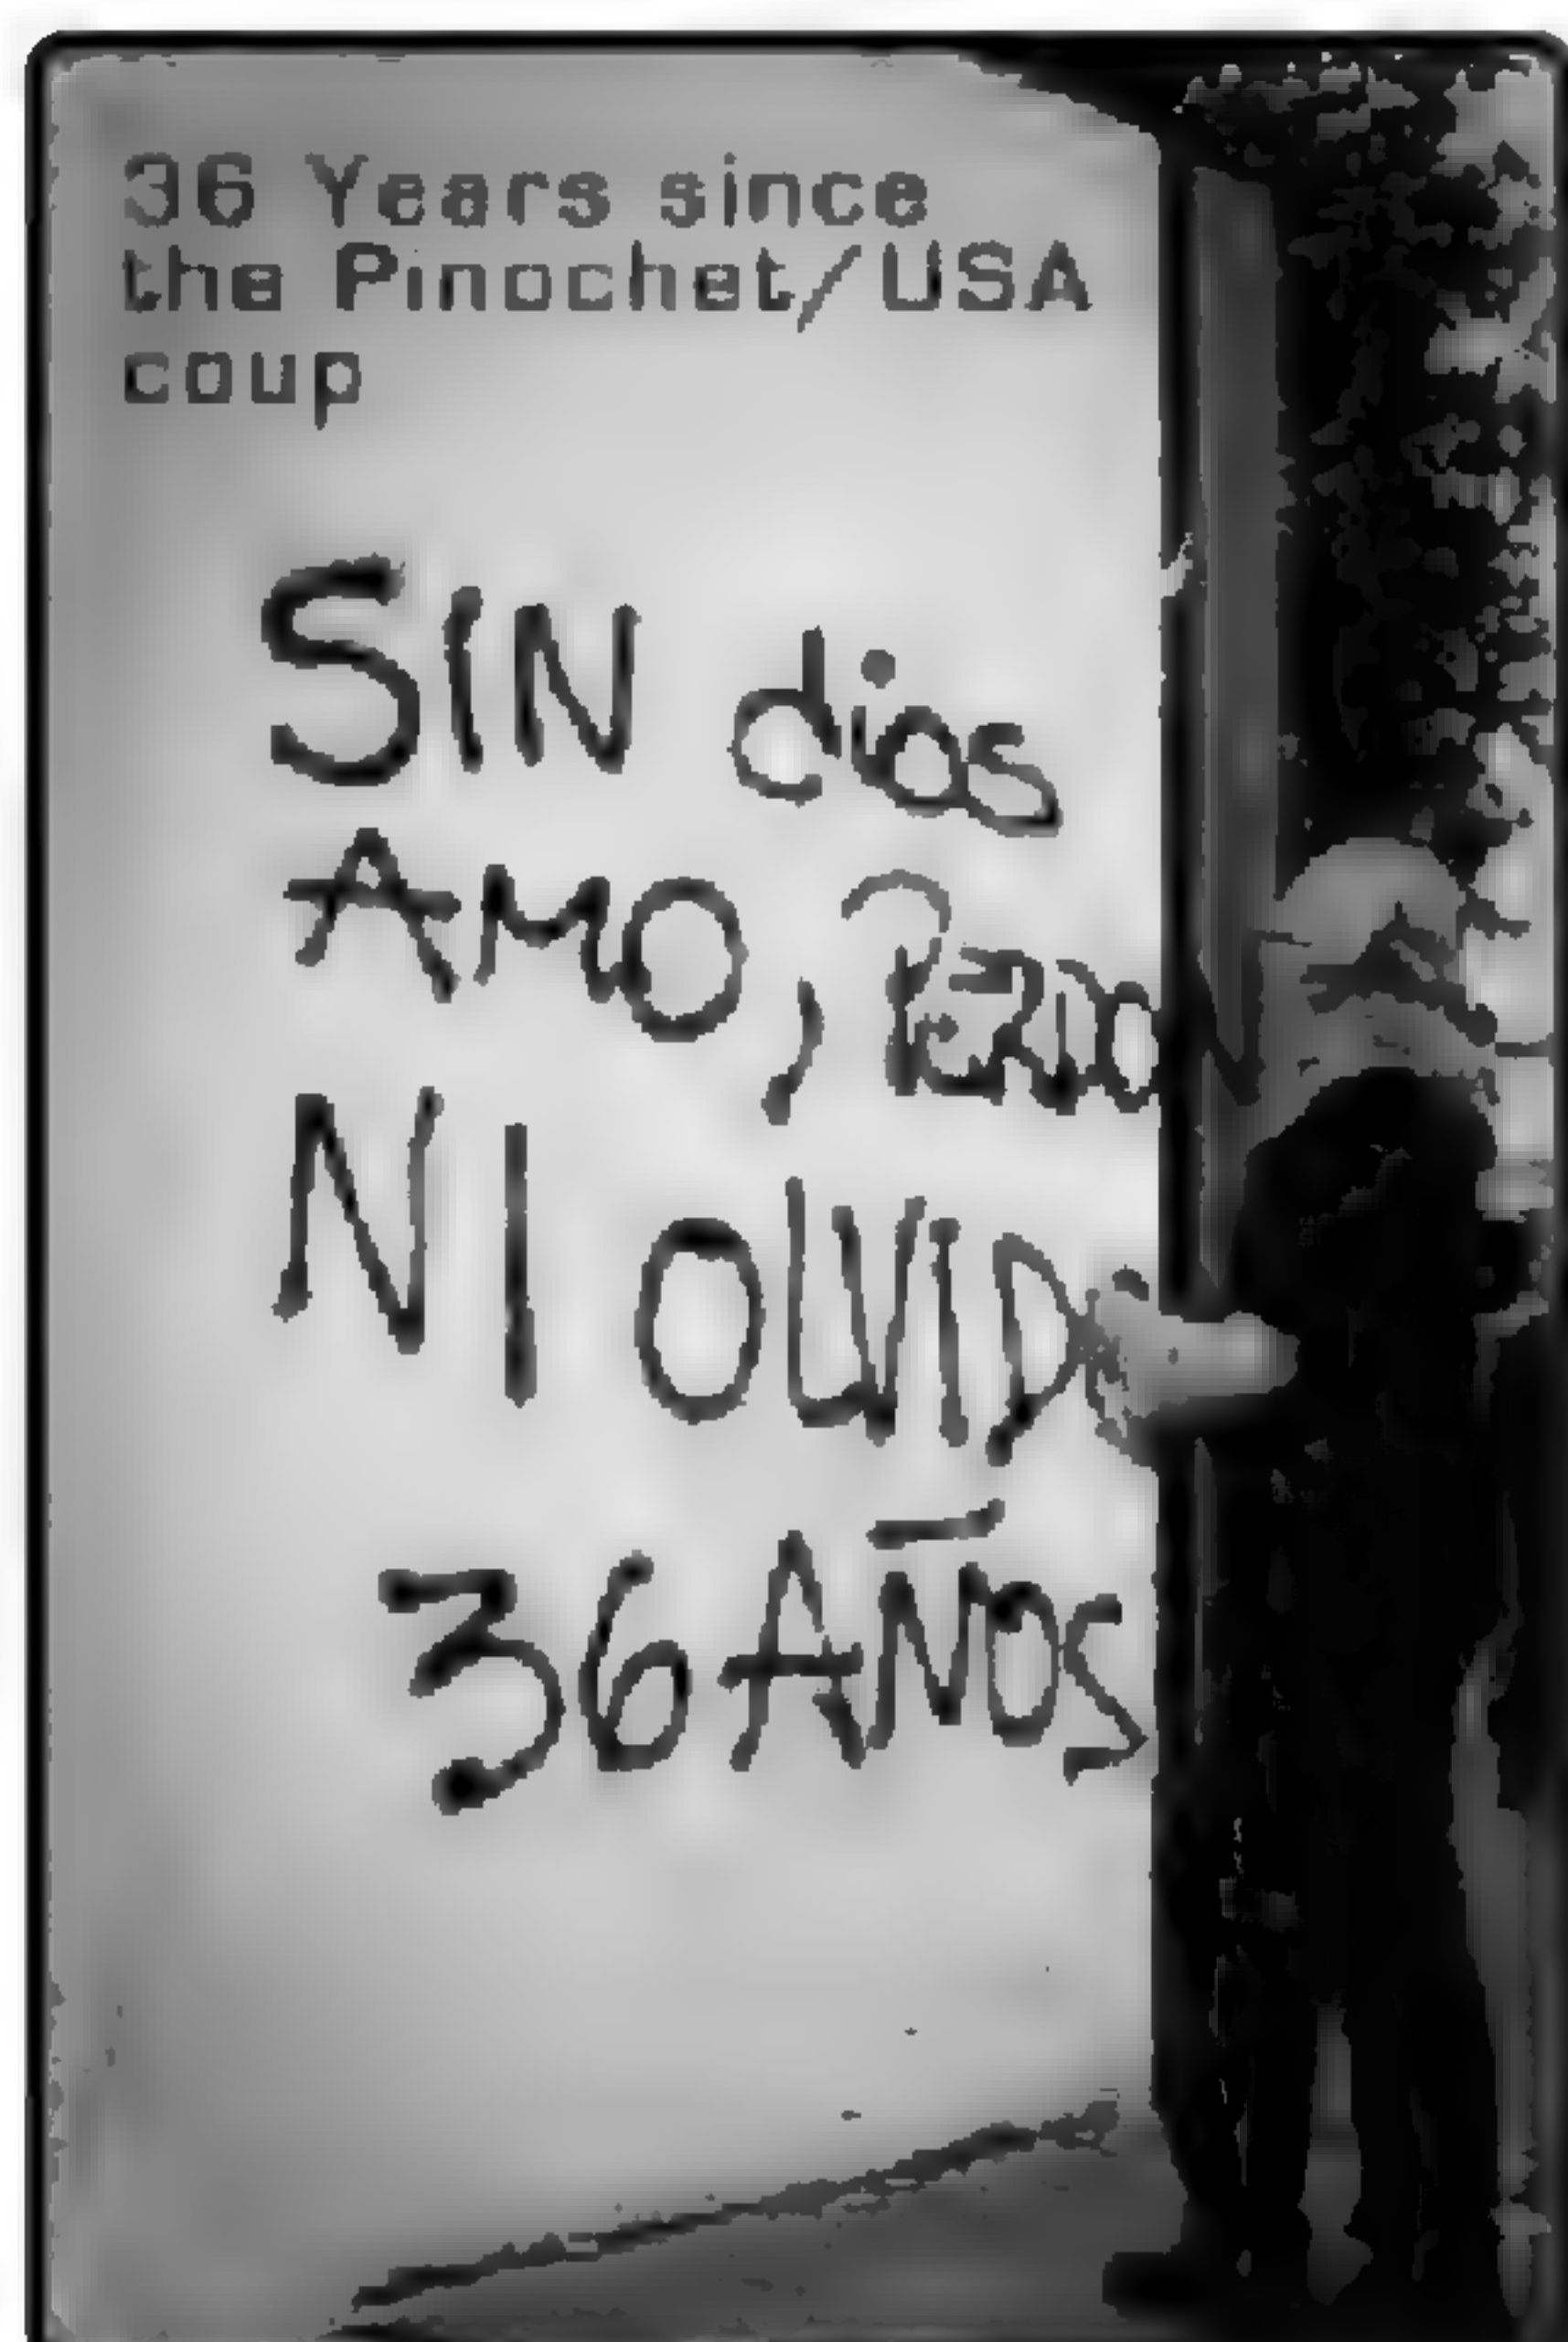 36 Years since
the Pinochet/USA
coup
SIN dios
AMO, PERDON
NI OLVIDO
36 AÑOS